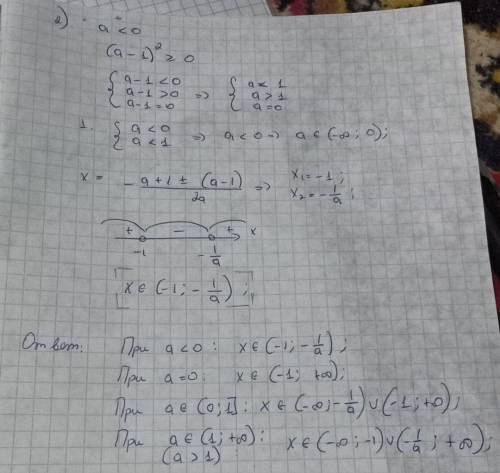 2) a < 0
(a-1)² ≥ 0
{ a-1 < 0
a-1 > 0
a-1 = 0 => { a < 1
a > 1
a = 0
1. { a < 0
a < 1 => a < 0 => a ∈ (-∞; 0);
x = - a+1 ± (a-1) / 2a => x₁ = -1;
x₂ = - 1/a;
+ - + x
-1 - 1/a
[x ∈ (-1; - 1/a);]
Ответ: При a < 0: x ∈ (-1; - 1/a);
При a = 0: x ∈ (-1; +∞);
При a ∈ (0; 1]: x ∈ (-∞; - 1/a) ∪ (-1; +∞);
При a ∈ (1; +∞): x ∈ (-∞; -1) ∪ (- 1/a; +∞);
(a > 1)